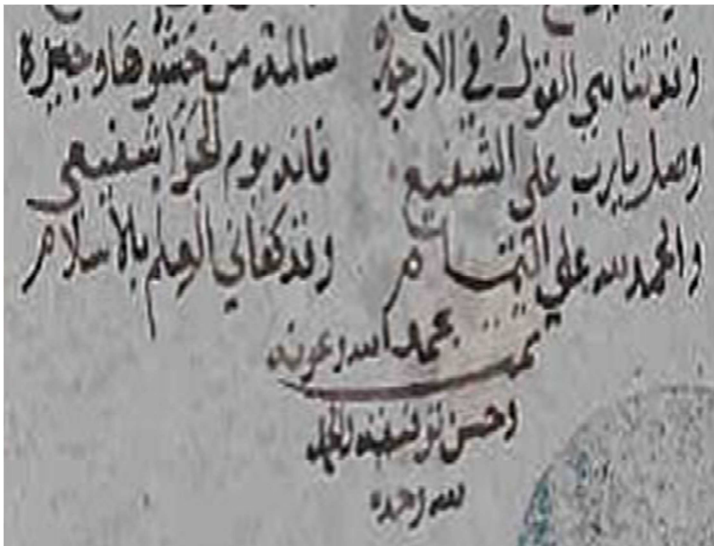 وقد تناهى القول في الارجوزه سالمة من حشوها وجيزة
وصل يا رب على الشفيع فانه يوم الجزا شفيعي
والحمد لله على التمام وقد كفاني العلم بالاسلام
تمت بحمد الله وعونه
وحسن توفيقه الحمد
لله وحده